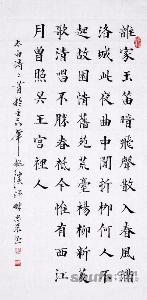 誰家玉笛暗飛聲散入春風滿
洛城此夜曲中聞折柳何人不
起故園情舊苑荒臺楊柳新菱
歌清唱不勝春祗今惟有西江
月曾照吳王宮裏人
太白詩二首